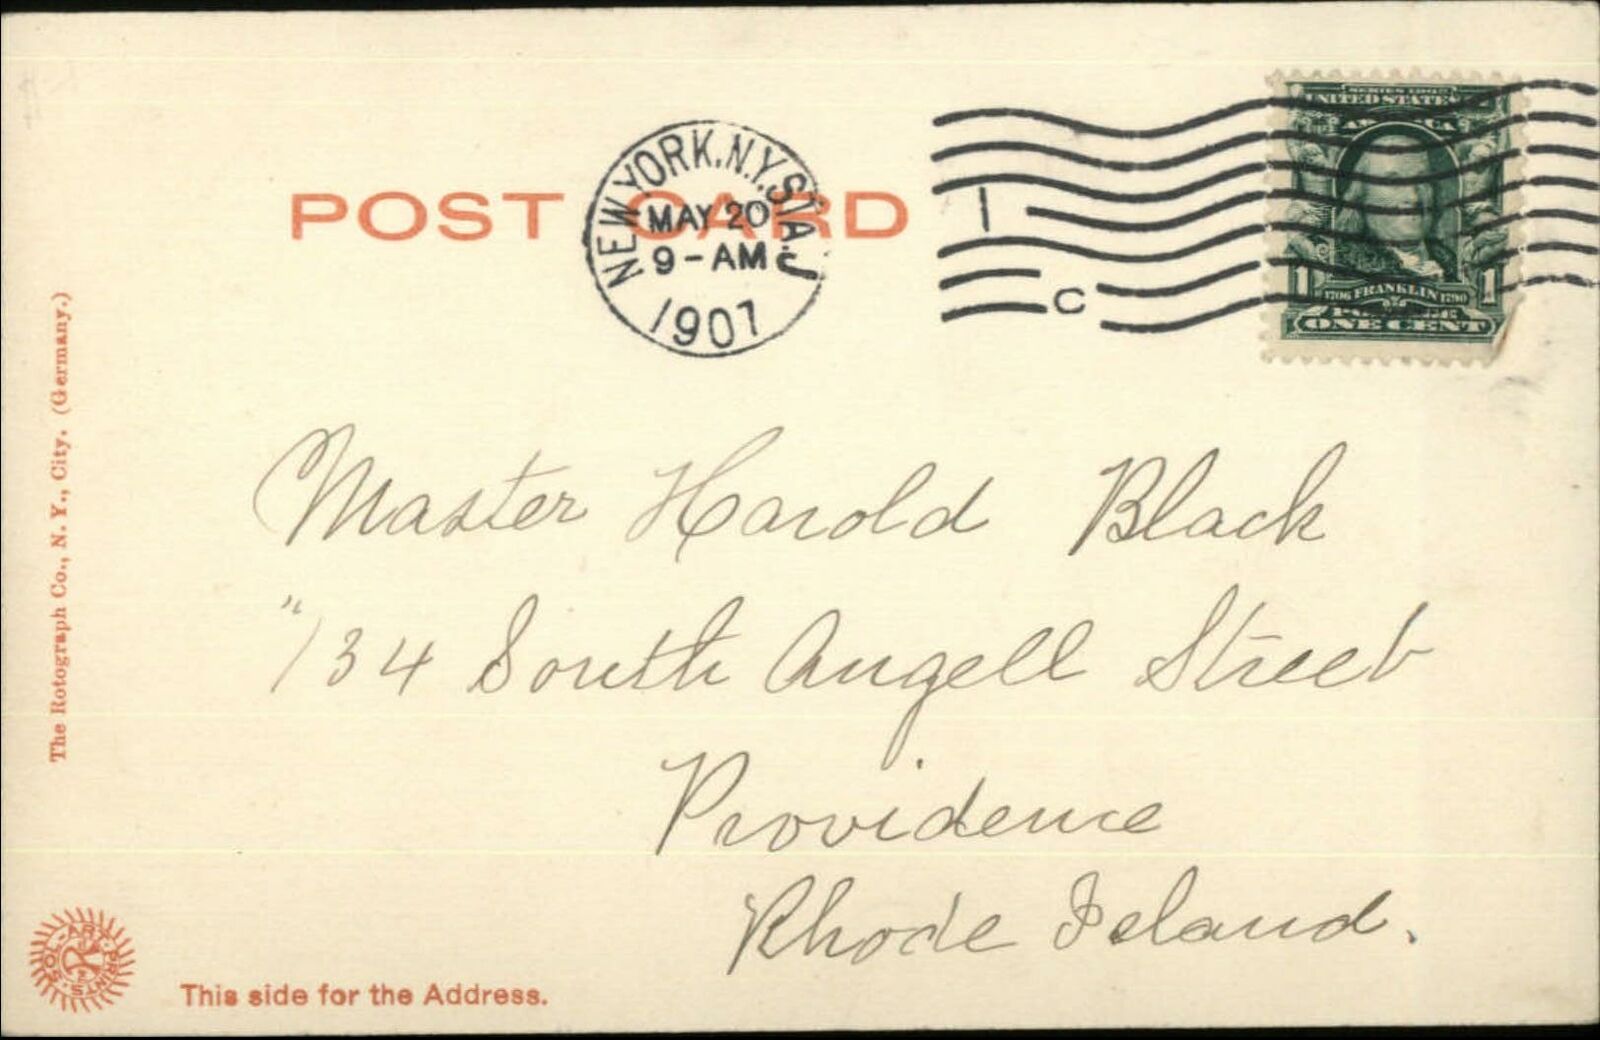 POST CARD
NEW YORK, N.Y. STA. J
MAY 20
9-AM
1907
1
C
SERIES 1902
UNITED STATES
AMERICA
1 1706 FRANKLIN 1790 1
POSTAGE
ONE CENT
Master Harold Black
"134 South Angell Street
Providence
Rhode Island.
The Rotograph Co., N. Y., City. (Germany.)
SOL-ART PRINTS
This side for the Address.